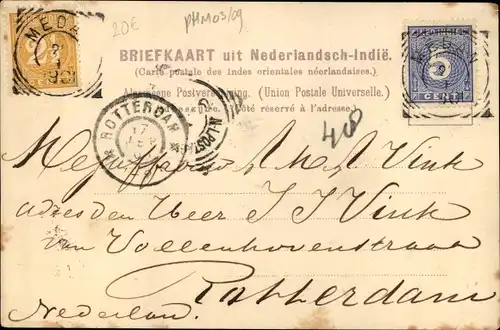 20€
PHM03/09
MEDAN
BRIEFKAART uit Nederlandsch-Indië.
(Carte postale des Indes orientales néerlandaises.)
Algemeene Postvereeniging. (Union Postale Universelle.)
Côté réservé à l'adresse.)
MEDAN
5
CENT
ROTTERDAM
17
N.I. POST
408
Mejuffrouw A M A Vink
adres den Heer J J Vink
van Vollenhovenstraat
Rotterdam
Nederland.